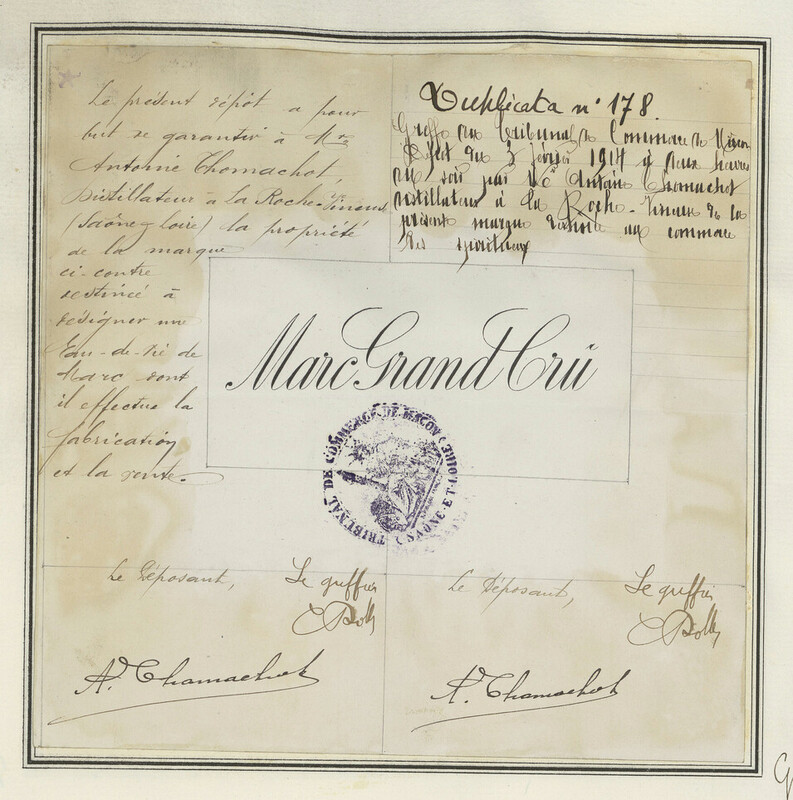 Le présent dépôt a pour
but de garantir à Mr
Antoine Chomachot,
Distillateur à la Roche-Vineuse
(Saône & Loire) la propriété
de la marque
ci-contre
destinée à
désigner une
Eau-de-Vie de
Marc dont
il effectue la
fabrication
et la vente.
Duplicata n° 178.
Greffe du Tribunal de Commerce de Mâcon
Dépôt du 3 février 1914 à deux heures
du soir par Mr Antoine Chomachot
distillateur à la Roche-Vineuse de la
présente marque destinée au commerce
des spiritueux
Marc Grand Crû
TRIBUNAL DE COMMERCE DE MACON (SAÔNE-ET-LOIRE)
Le Déposant,
Le greffier
A. Chamachot
Le Déposant,
Le greffier
A. Chamachot